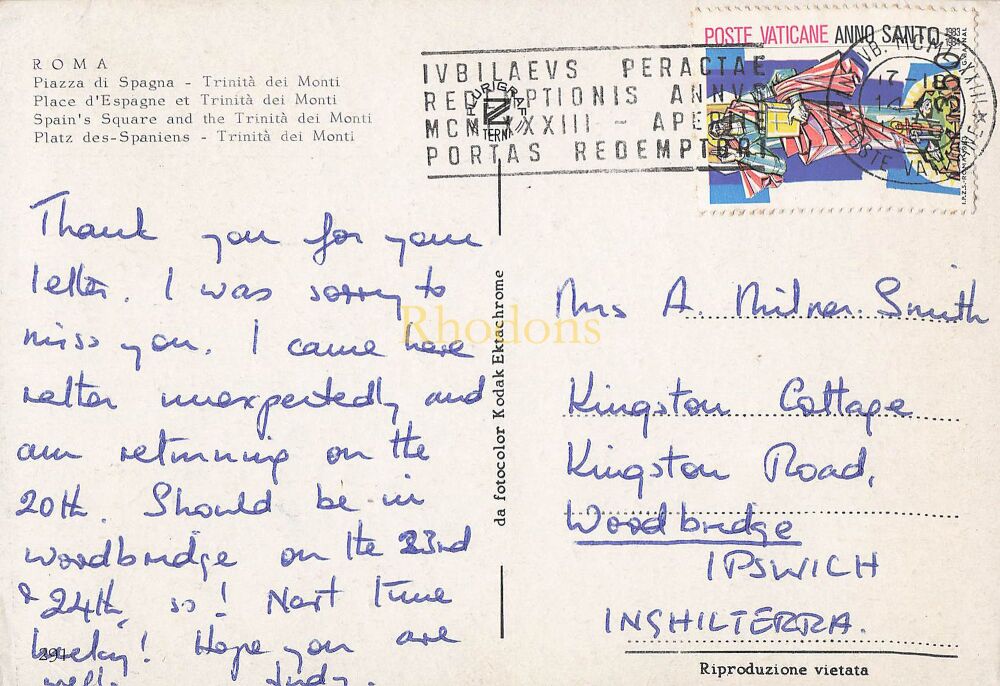 ROMA
Piazza di Spagna - Trinità dei Monti
Place d'Espagne et Trinità dei Monti
Spain's Square and the Trinità dei Monti
Platz des-Spaniens - Trinità dei Monti
IVBILAEVS PERACTAE
REDEMPTIONIS ANNVS
MCMLXXXIII - APERITE
PORTAS REDEMPTORI
PLURIGRAF
TERNI
POSTE VATICANE ANNO SANTO 1983
Thank you for your
letter. I was sorry to
miss you. I came here
rather unexpectedly and
am returning on the
20th. Should be in
woodbridge on the 23rd
& 24th, so! Next time
lucky! Hope you are
well. Judy.
291
da fotocolor Kodak Ektachrome
Rhodons
Mrs A. Milner-Smith
Kingston Cottage
Kingston Road,
Woodbridge
IPSWICH
INGHILTERRA.
Riproduzione vietata